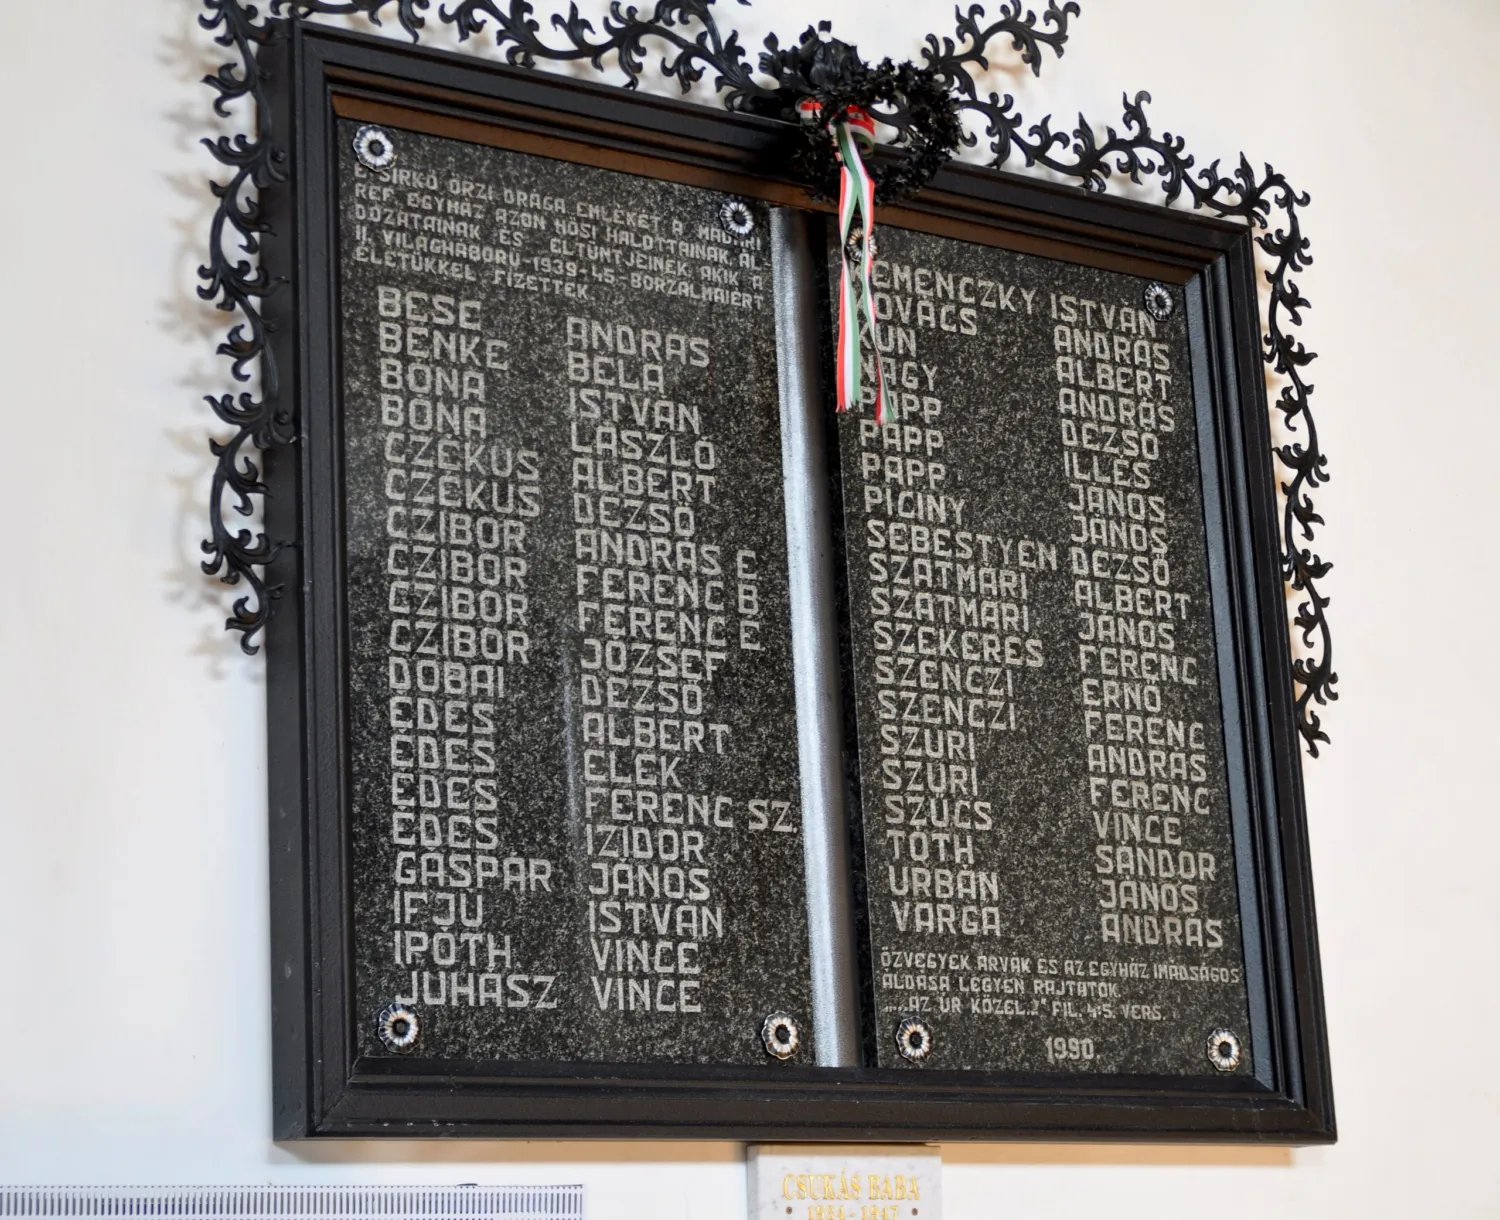 E SÍRKŐ ŐRZI DRÁGA EMLÉKÉT A MADARI
REF. EGYHÁZ AZON HŐSI HALOTTAINAK, ÁL
DOZATAINAK ÉS ELTŰNTJEINEK, AKIK A
II. VILÁGHÁBORÚ-1939-45-BORZALMAIÉRT
ÉLETÜKKEL FIZETTEK.
BESE ANDRÁS
BENKE BÉLA
BÓNA ISTVÁN
BÓNA LÁSZLÓ
CZÉKUS ALBERT
CZÉKUS DEZSŐ
CZIBOR ANDRÁS E
CZIBOR FERENC B
CZIBOR FERENC E
CZIBOR JÓZSEF
DOBAI DEZSŐ
ÉDES ALBERT
ÉDES ELEK
ÉDES FERENC SZ.
ÉDES IZIDOR
GÁSPÁR JÁNOS
IFJÚ ISTVÁN
IPÓTH VINCE
JUHÁSZ VINCE
KEMENCZKY ISTVÁN
KOVÁCS ANDRÁS
KUN ALBERT
NAGY ANDRÁS
PAPP DEZSŐ
PAPP ILLÉS
PAPP JÁNOS
PICINY JÁNOS
SEBESTYÉN DEZSŐ
SZATMÁRI ALBERT
SZATMÁRI JÁNOS
SZEKERES FERENC
SZENCZI ERNŐ
SZENCZI FERENC
SZŰRI ANDRÁS
SZŰRI FERENC
SZŰCS VINCE
TÓTH SÁNDOR
URBÁN JÁNOS
VARGA ANDRÁS
ÖZVEGYEK ÁRVÁK ÉS AZ EGYHÁZ IMÁDSÁGOS
ÁLDÁSA LEGYEN RAJTATOK.
„...AZ ÚR KÖZEL..." FIL. 4:5. VERS.
1990
CSUKÁS BABA